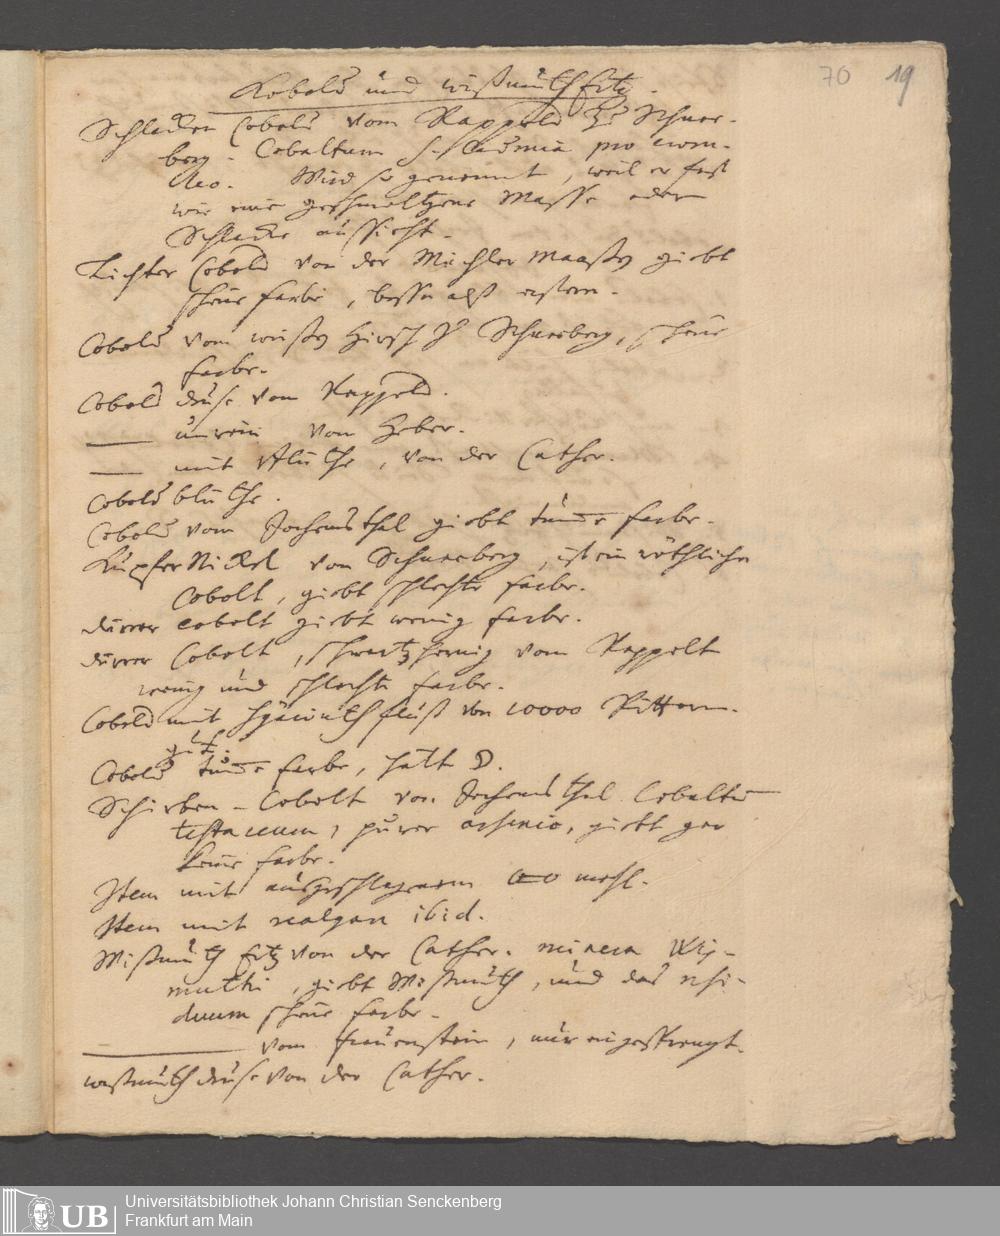 70 19
Kobold und Wißmuth Ertz.
Schlacken Cobold vom Rappold zu Schnee-
berg. Cobaltum pro
Wird so genennt, weil er fast
wie eine geschmeltzene Masse oder
Schlacke aussieht.
Lichter Cobold von der giebt
schöne farbe, besser alß erstern.
Cobold vom weißen Hirsch Schneeberg, schöne
farbe.
Cobold druse vom Rappold.
—— unrein vom Heber.
—— mit Blüthe, von der Cather.
Cobold blüthe.
Cobold vom Jochemsthal giebt farbe.
Kupfer Nickel von Schneeberg, ist ein röthlicher
Cobolt, giebt schlechte farbe.
dürrer cobolt giebt wenig farbe.
dürrer Cobolt, vom Rappolt
wenig und schlechte farbe.
Cobold mit Hyacinth fluß von 10000 Rittern.
Cobold farbe, hält
Schirben-Cobolt von Jochemsthal Cobaltum
testaceum, purer arsenic, giebt gar
keine farbe.
Item mit ausgeschlagenem mehl.
Item mit realgar ibid.
Wißmuth Ertz von der Cather. minera Wis-
muthi, giebt Wißmuth, und das resi-
duum schöne farbe.
—— vom Frauenstein, nur eingesprengt.
Wißmuth druse von der Cather.
UB
Universitätsbibliothek Johann Christian Senckenberg
Frankfurt am Main